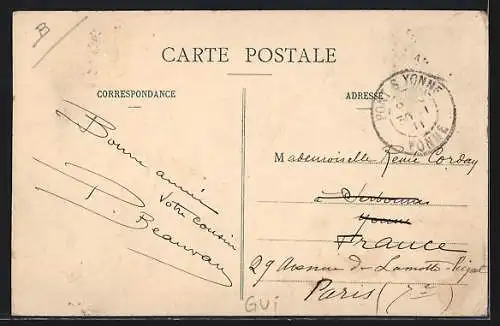 B
CARTE POSTALE
CORRESPONDANCE
ADRESSE
PONT S YONNE
YONNE
Mademoiselle Renée Corday
à Serbonnes
Yonne
France
29 Avenue de Lamotte-Piquet
Paris (7e)
Bonne année
Votre cousin
P. Beauvau
GUI